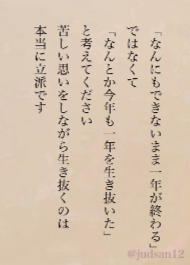 「なんにもできないまま一年が終わる」
ではなくて
「なんとか今年も一年を生き抜いた」
と考えてください
苦しい思いをしながら生き抜くのは
本当に立派です
@judsan12